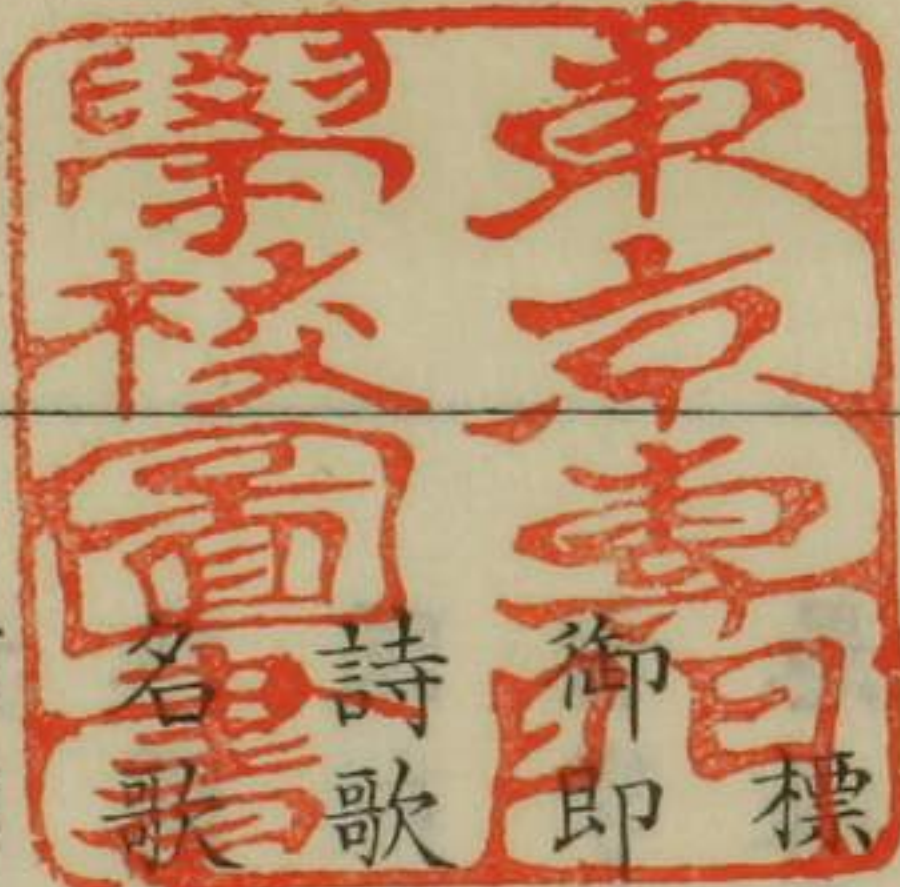 東京專門
學校圖書
標
御即
詩歌
名歌